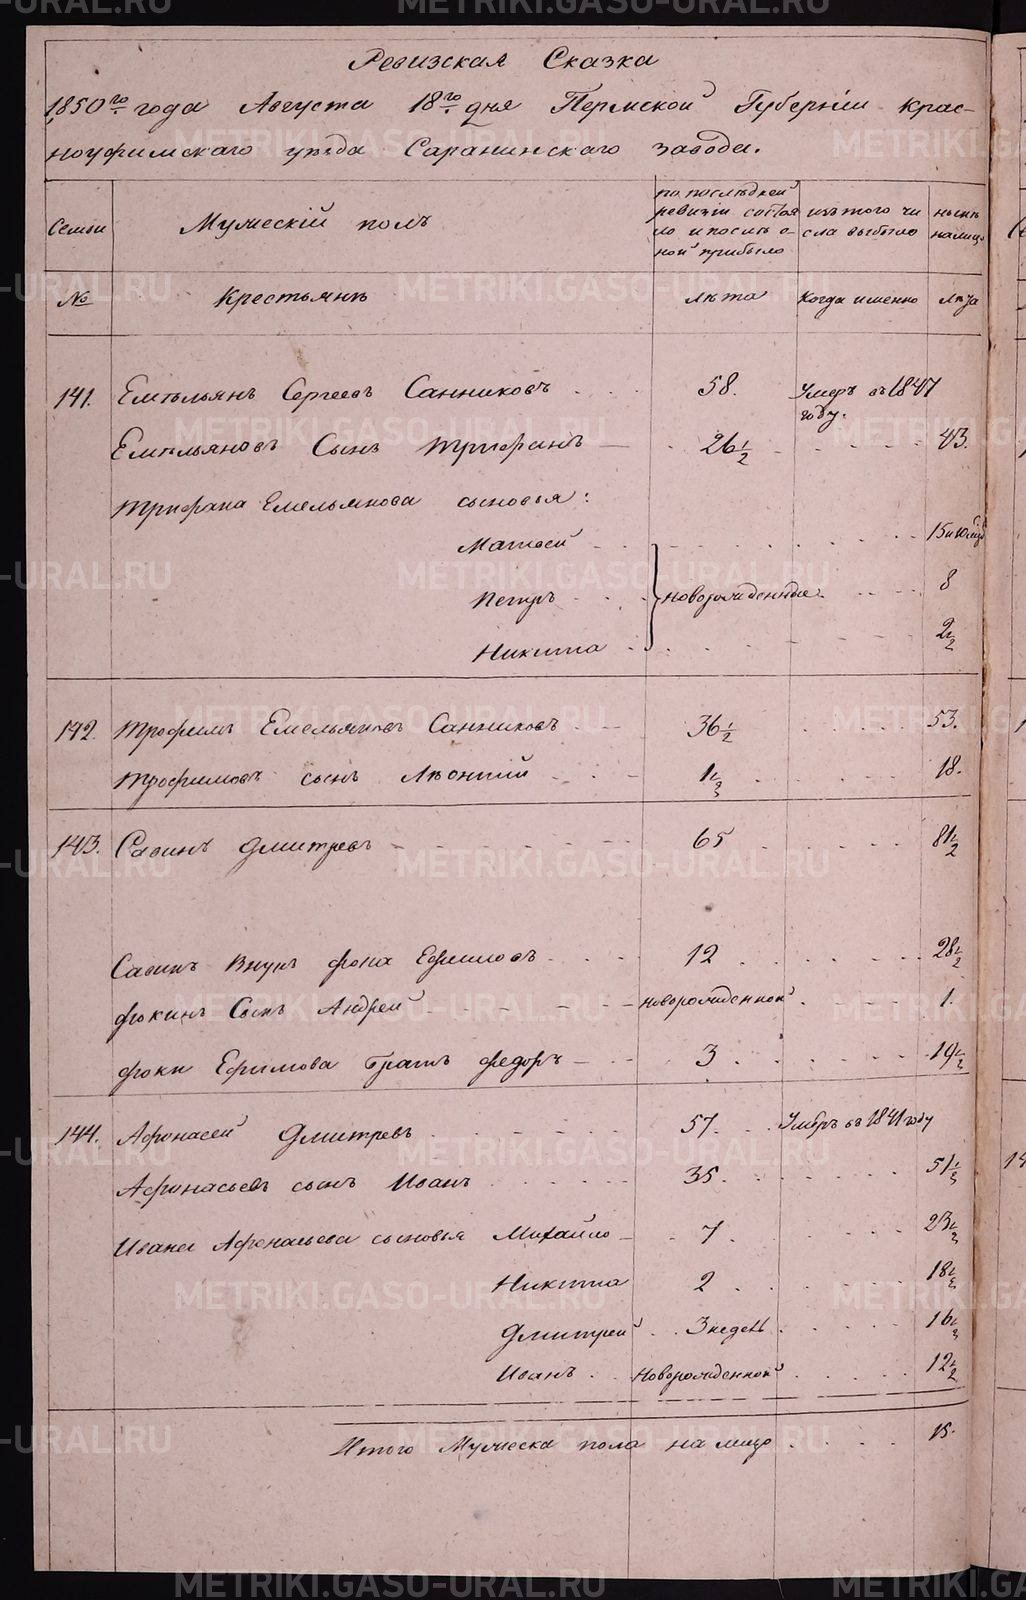 Ревизская Сказка
1850го года Августа 18го дня Пермской Губернiи крас-
ноуфимскаго уѣзда Саранинскаго завода.
Семьи
Мужескiй полъ
по послѣдней
ревизiи состоя
ло и послѣ о-
ной прибыло
изъ того чи
сла выбыло
нынѣ
налицо
№
Крестьянѣ
лѣта
Когда именно
лѣта
141. Емельянъ Сергеевъ Санниковъ 58. Умеръ въ 1847
году.
Емельяновъ Сынъ Трифанъ 26 1/2 43.
Трифана Емельянова сыновья:
Матвей 15 и 10 мѣс
Петръ новорожденные 8
Никита 2 1/2
142. Трофимъ Емельяновъ Санниковъ 36 1/2 53.
Трофимовъ сынъ Леонтiй 1 1/2 18.
143. Савинъ Дмитревъ 65 81 1/2
Савинъ Внукъ Фока Ефимовъ 12 28 1/2
Фокинъ Сынъ Андрей новорожденной 1.
Фоки Ефимова братъ Федоръ 3 19 1/2
144. Афонасей Дмитревъ 57 Умеръ въ 1841 году
Афонасьевъ сынъ Иванъ 35 51 1/2
Ивана Афонасьева сыновья Михайло 7 23 1/2
Никита 2 18 1/2
Дмитрей 3 недель 16 1/2
Иванъ Новорожденной 12 1/2
Итого Мужеска пола на лицо 15.
METRIKI.GASO-URAL.RU